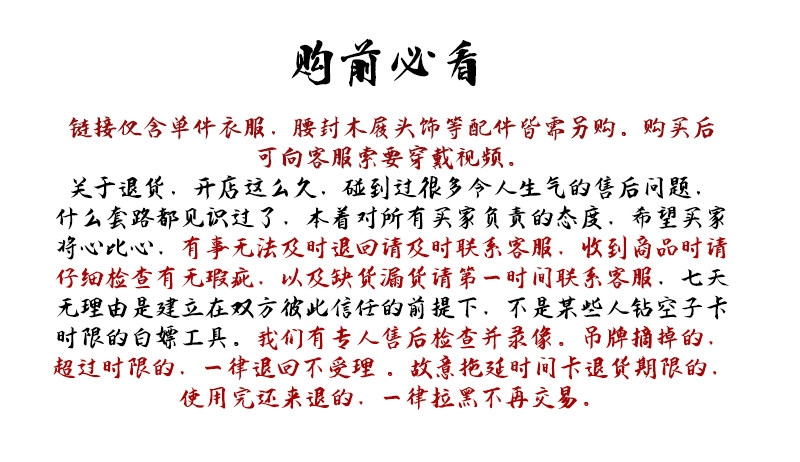 购前必看
链接仅含单件衣服，腰封木屐头饰等配件皆需另购。购买后
可向客服索要穿戴视频。
关于退货，开店这么久，碰到过很多令人生气的售后问题，
什么套路都见识过了，本着对所有买家负责的态度，希望买家
将心比心，有事无法及时退回请及时联系客服，收到商品时请
仔细检查有无瑕疵，以及缺货漏货请第一时间联系客服，七天
无理由是建立在双方彼此信任的前提下，不是某些人钻空子卡
时限的白嫖工具。我们有专人售后检查并录像。吊牌摘掉的，
超过时限的，一律退回不受理 。故意拖延时间卡退货期限的，
使用完还来退的，一律拉黑不再交易。